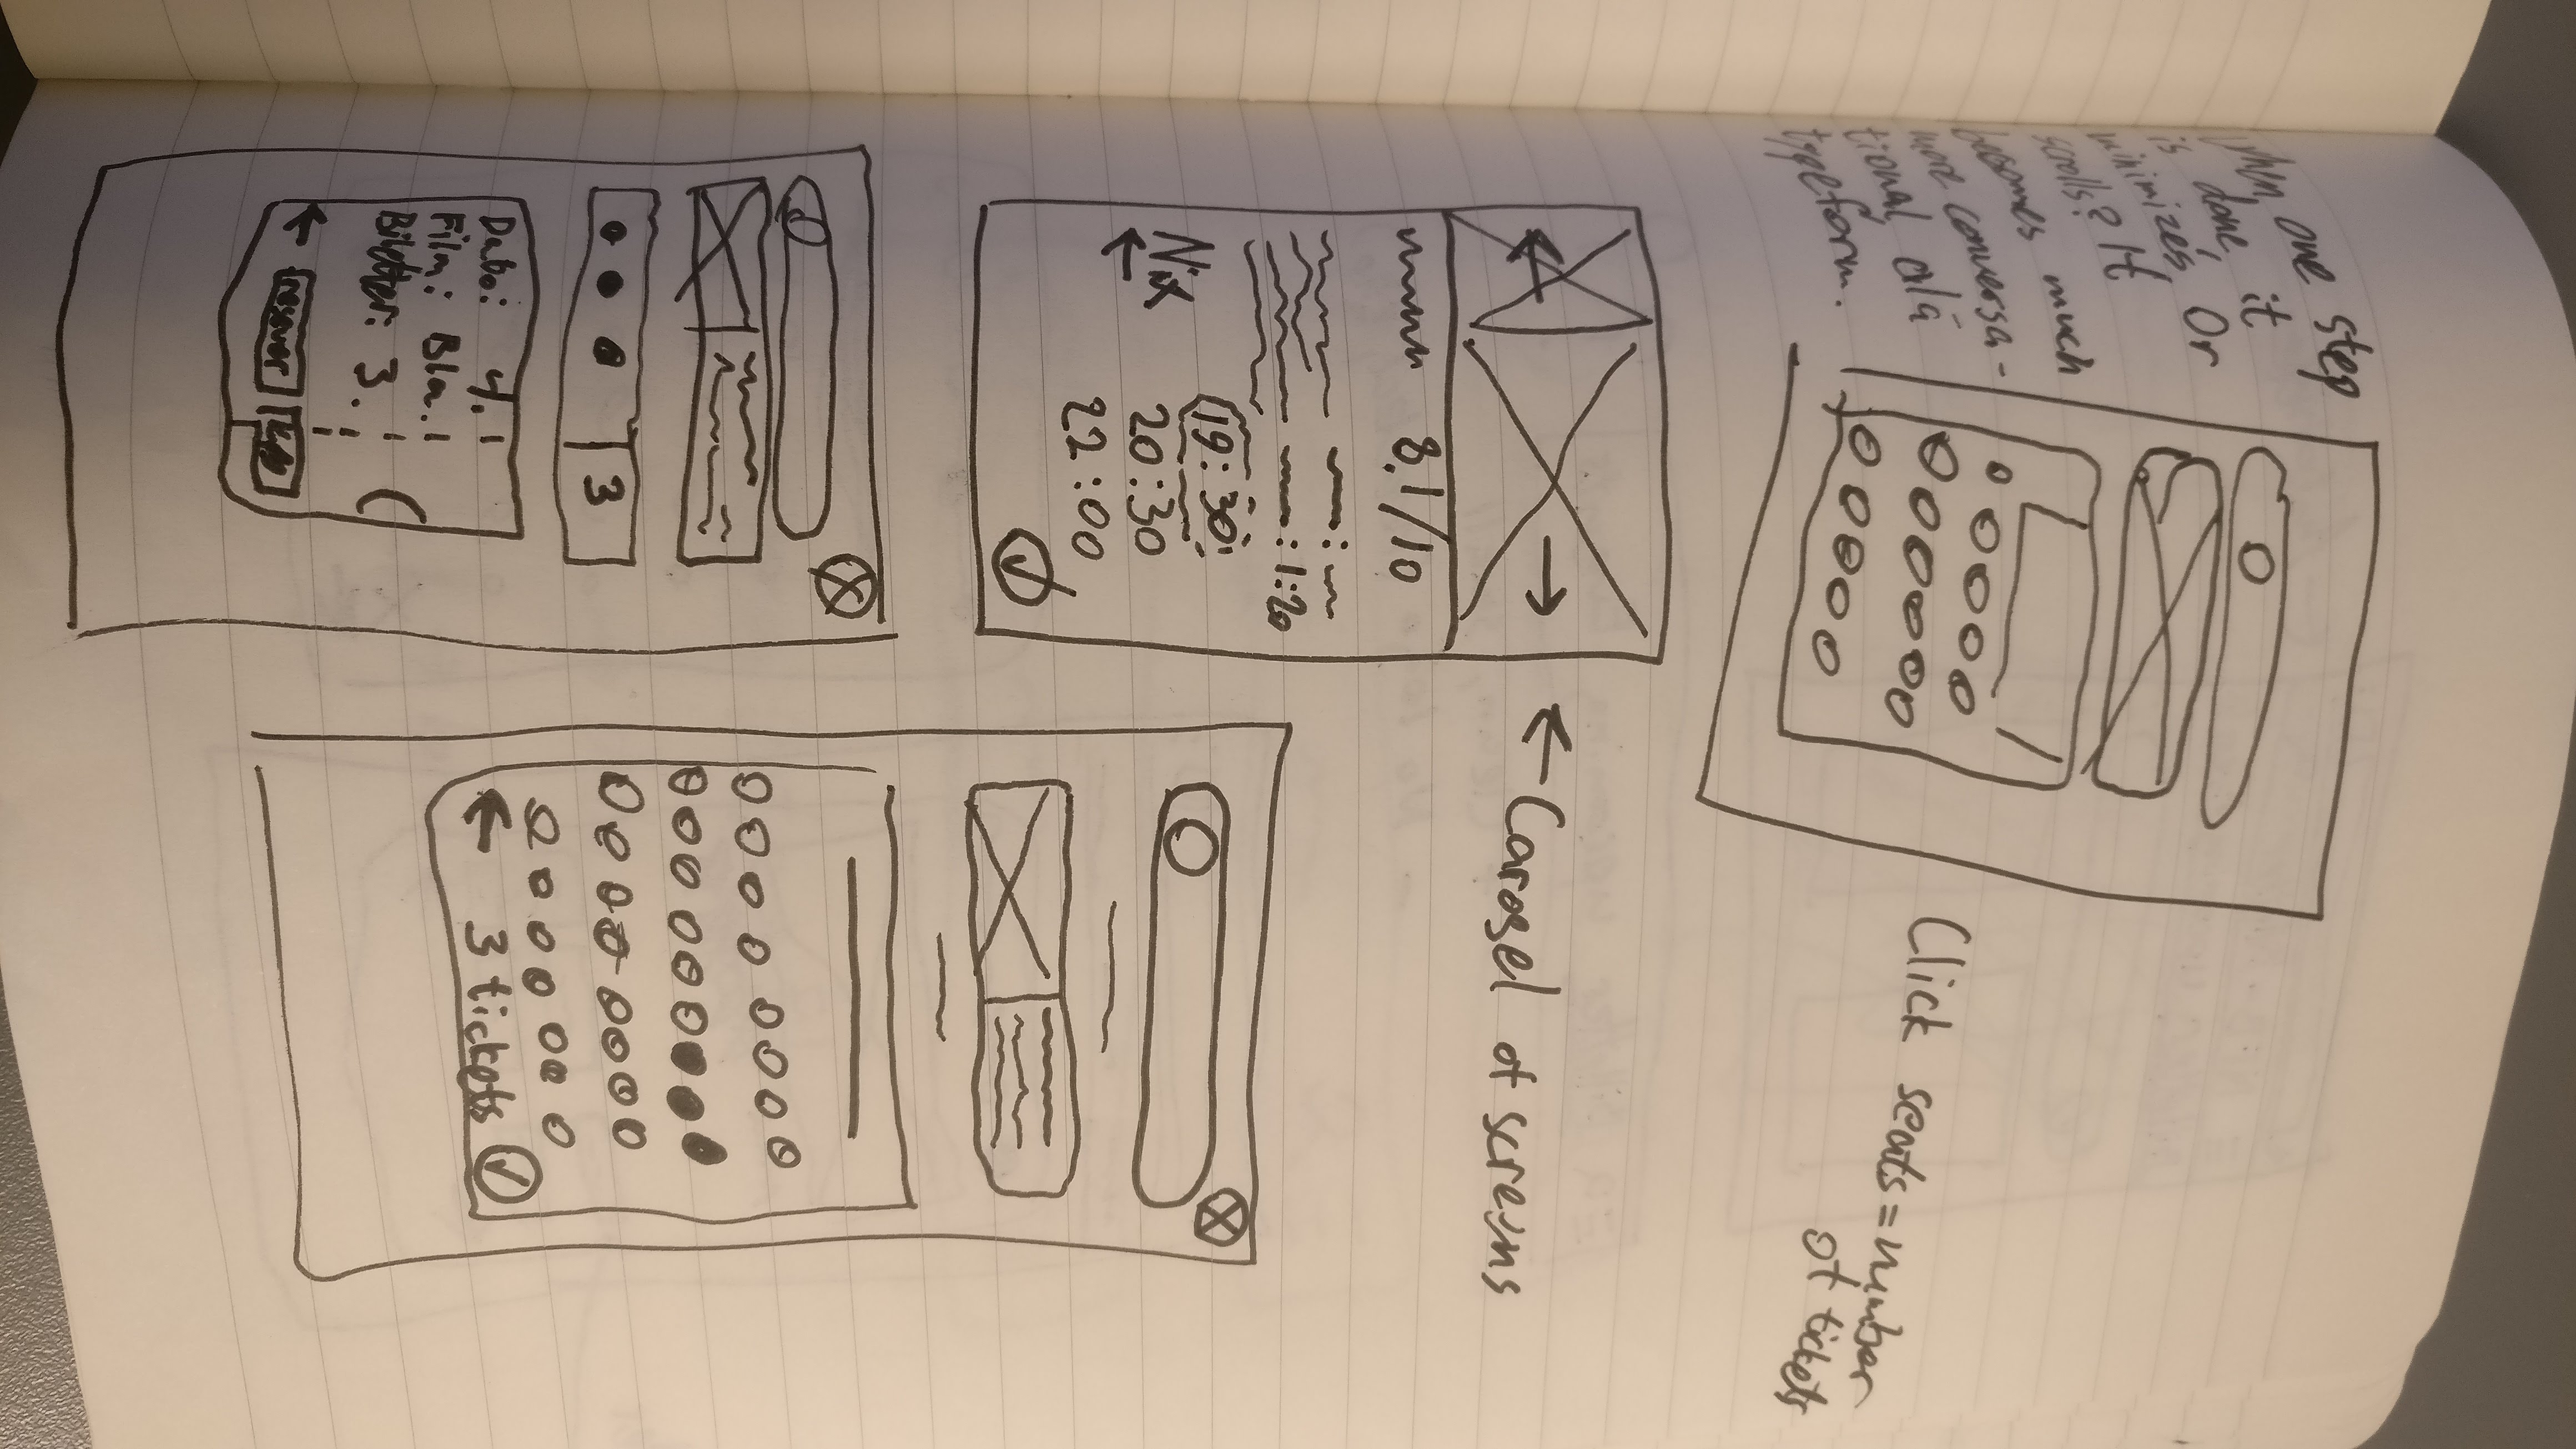 When one step
is done, it
minimizes. Or
scrolls? It
becomes much
more conversa-
tional alá
typeform.
Click seats = number
of tickets
← Carosel of screens
8.1/10
: 1:20
19:30
20:30
22:00
3 tickets
3
Dato: 4.
Film: Bla.
Biletter: 3.